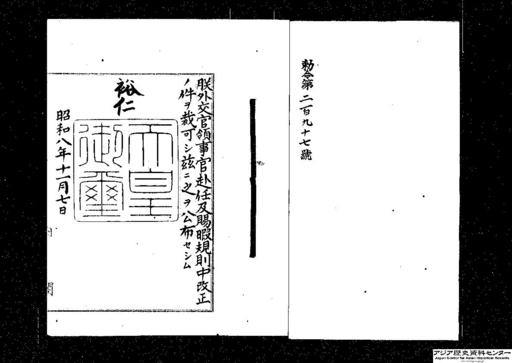 勅令第二百九十七號
朕外交官領事官赴任及賜暇規則中改正
ノ件ヲ裁可シ茲ニ之ヲ公布セシム
裕仁
天皇御璽
昭和八年十一月七日
アジア歴史資料センター
Japan Center for Asian Historical Records